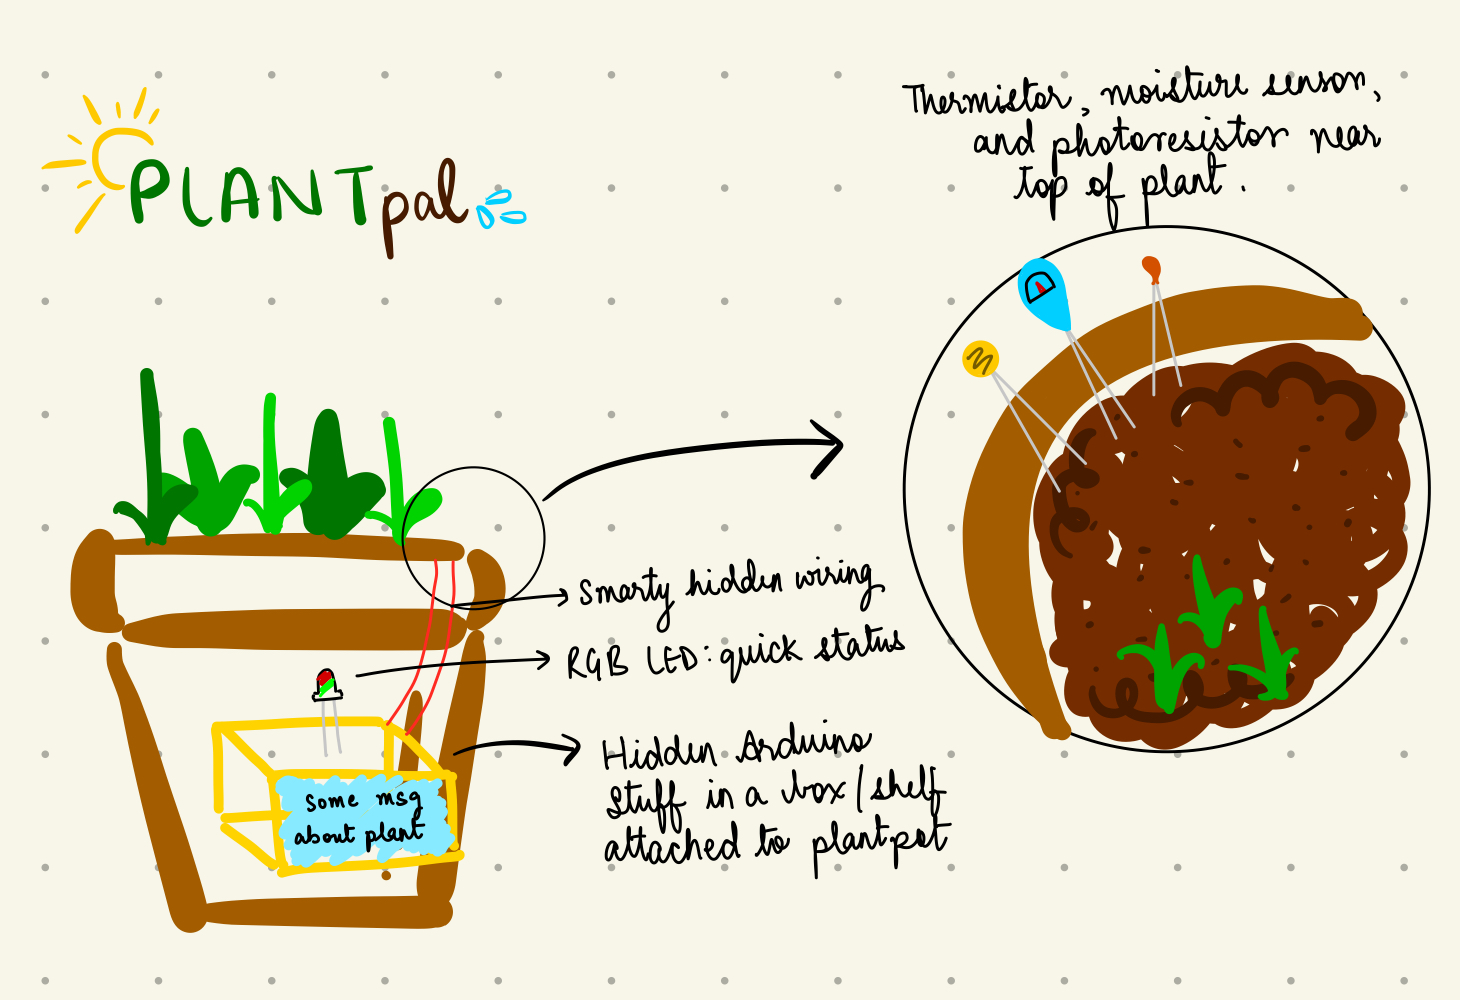 PLANTpal
Thermistor, moisture sensor,
and photoresistor near
top of plant.
Smarty hidden wiring
RGB LED: quick status
Hidden Arduino
stuff in a box/shelf
attached to plantpot
some msg
about plant